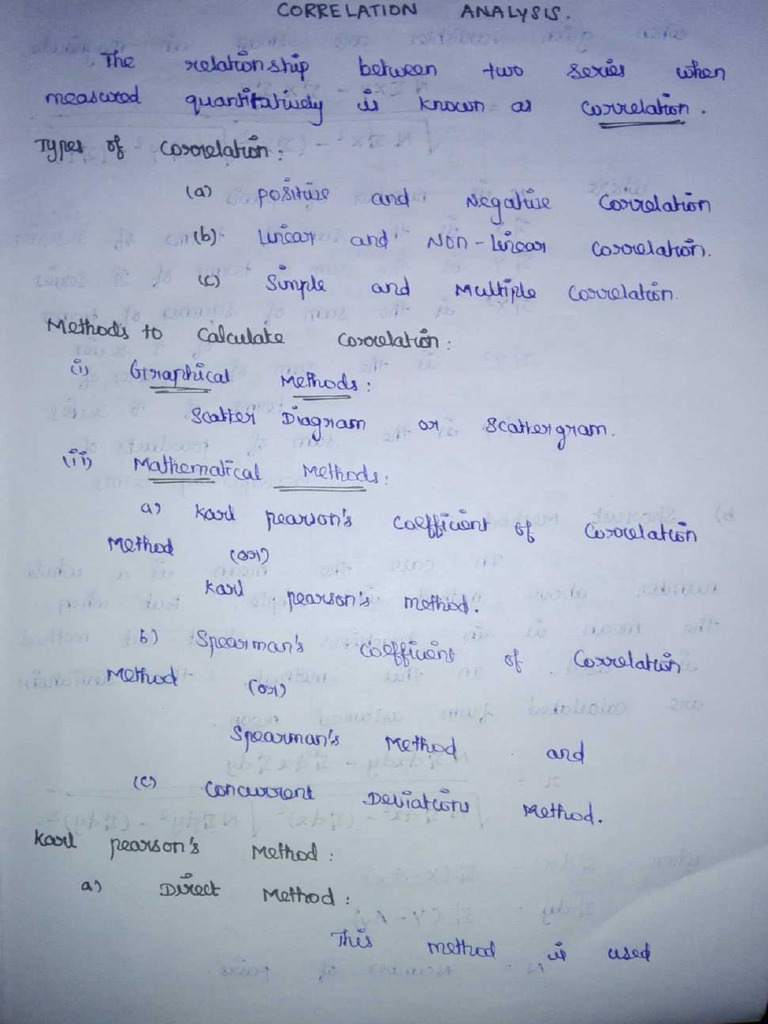 CORRELATION ANALYSIS.
The relationship between two series when
measured quantitatively is known as correlation.
Types of correlation:
(a) positive and Negative correlation
(b) Linear and Non-linear correlation.
(c) Simple and Multiple correlation.
Methods to calculate correlation:
(i) Graphical Methods:
Scatter Diagram or scattergram.
(ii) Mathematical Methods:
a) karl pearson's coefficient of correlation
Method (or)
karl pearson's method.
b) Spearman's coefficient of correlation
Method (or)
Spearman's Method and
(c) concurrent Deviations Method.
karl pearson's Method:
a) Direct Method:
This method is used